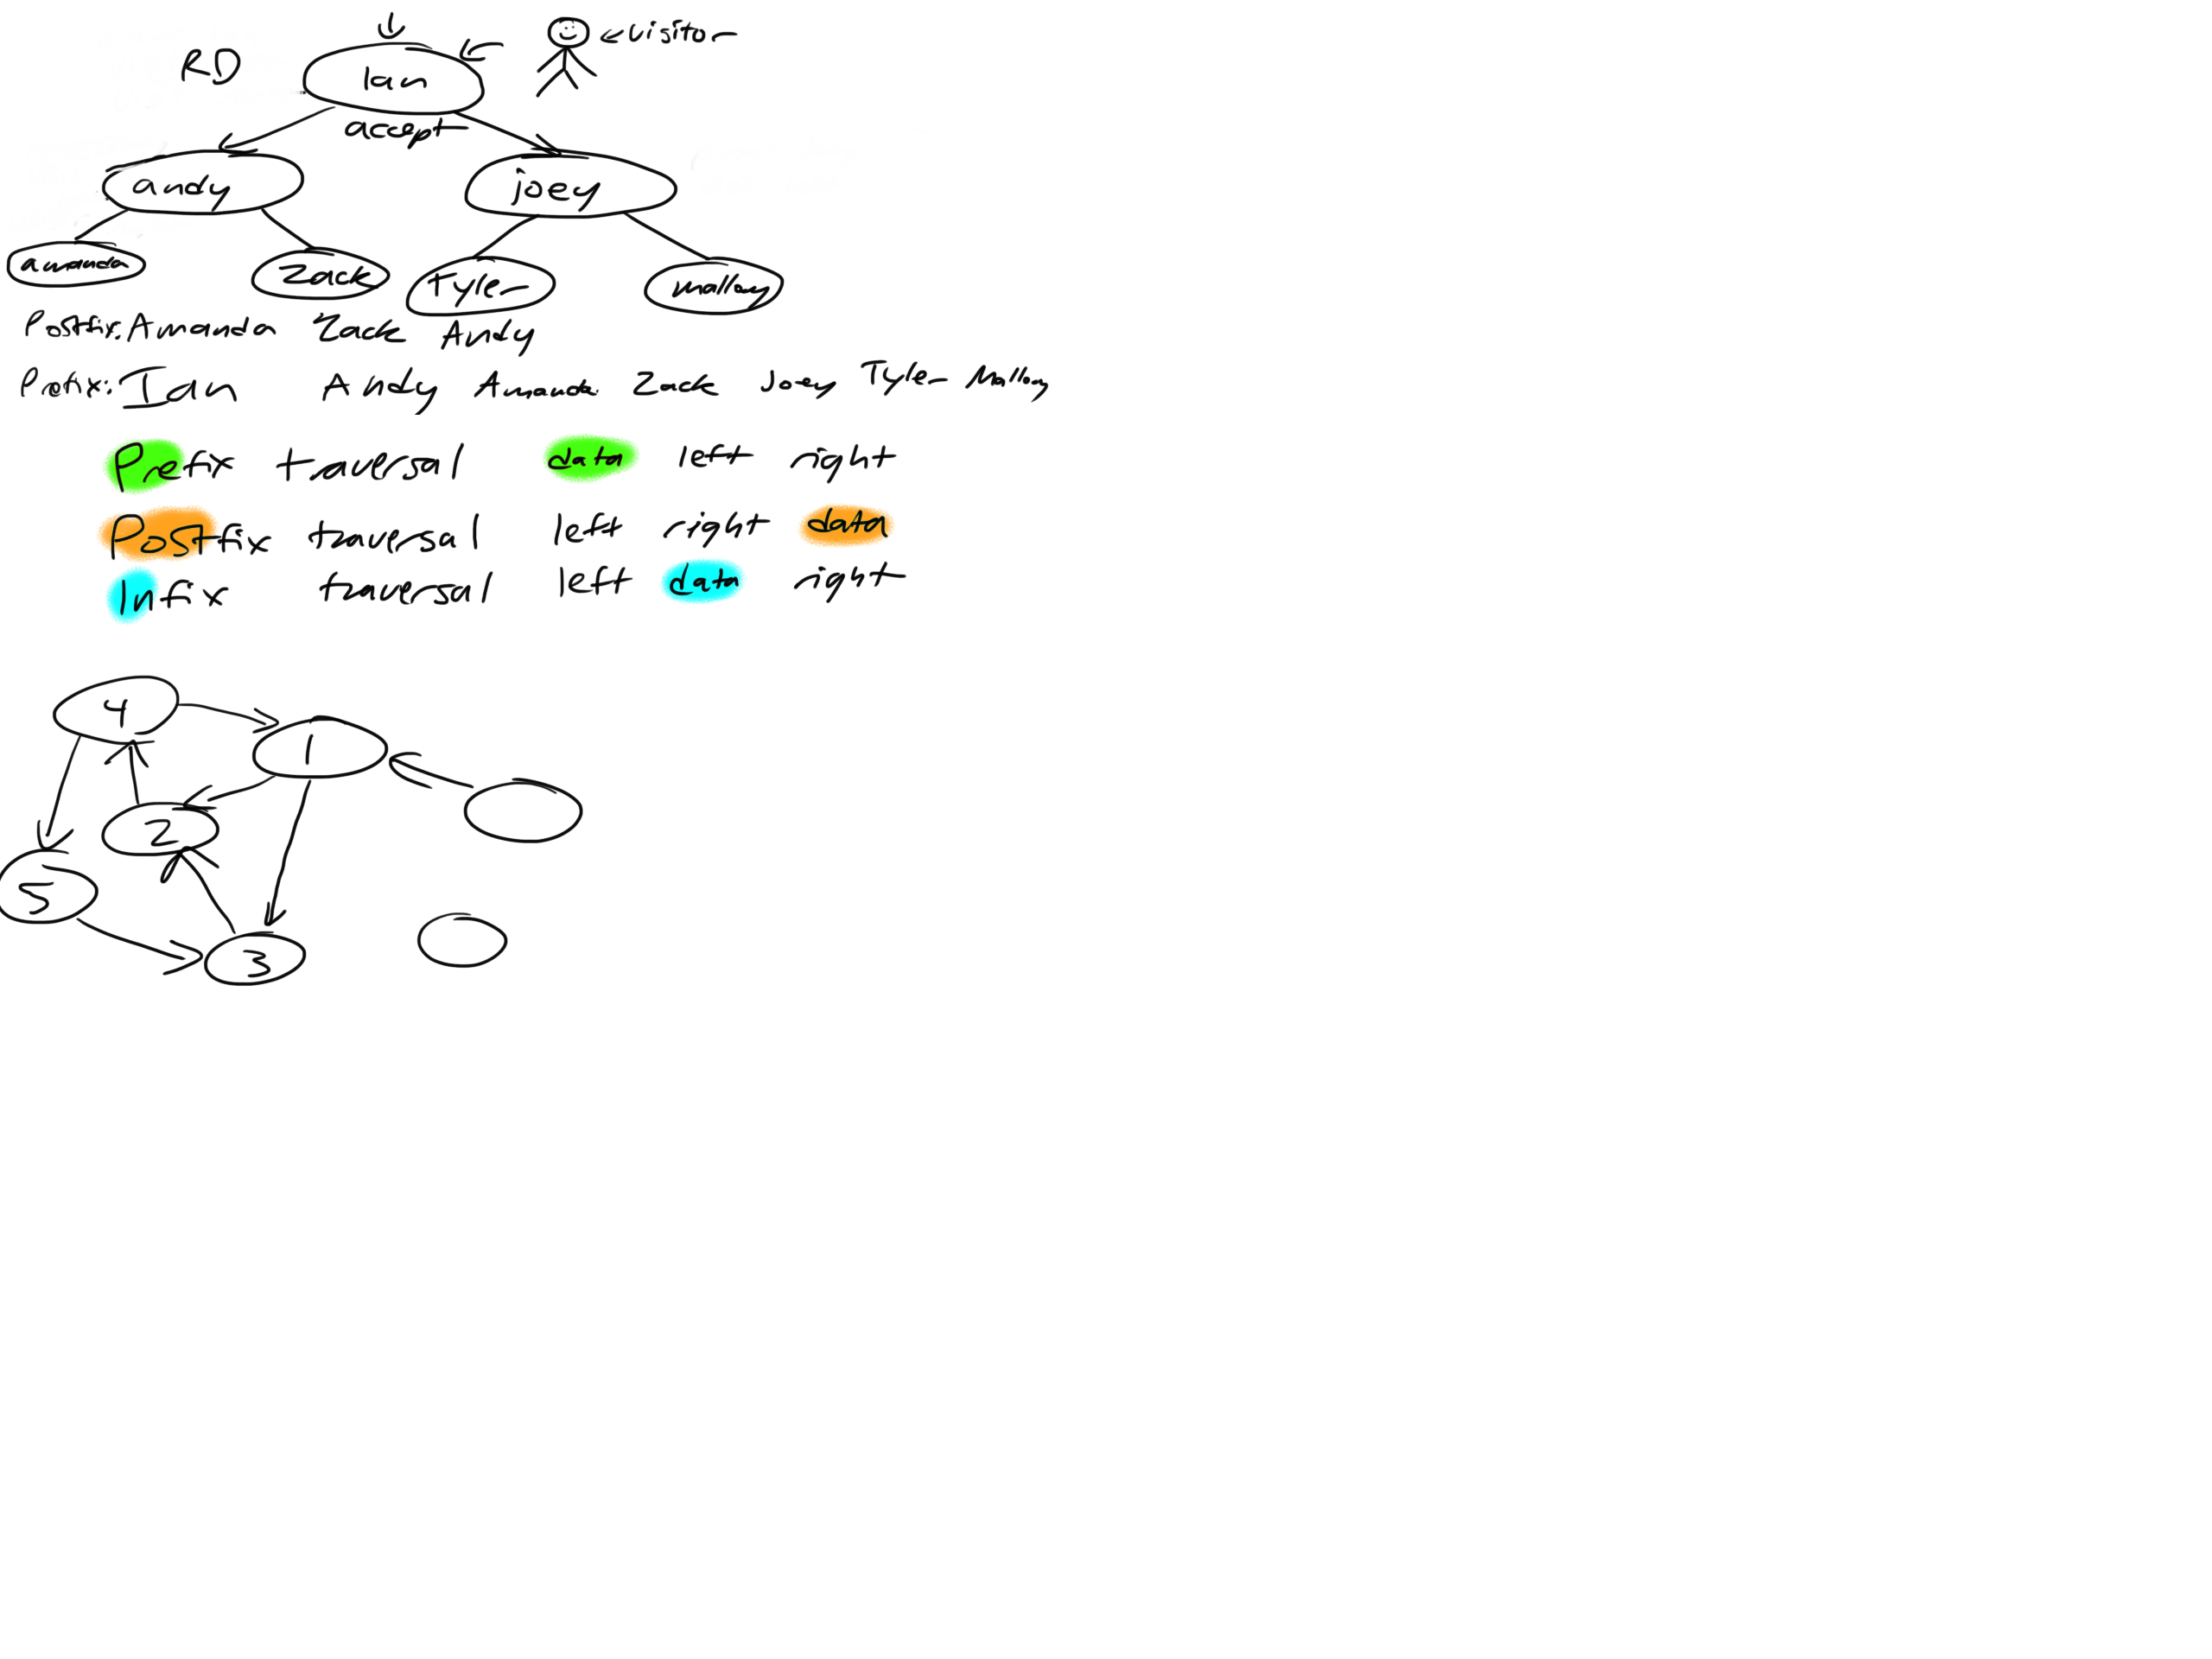 RD
Ian
←visitor
accept
andy
joey
amanda
Zack
Tyler
mallory
Postfix: Amanda Zack Andy
Prefix: Ian Andy Amanda Zack Joey Tyler Mallory
Prefix traversal data left right
Postfix traversal left right data
Infix traversal left data right
4
1
2
5
3